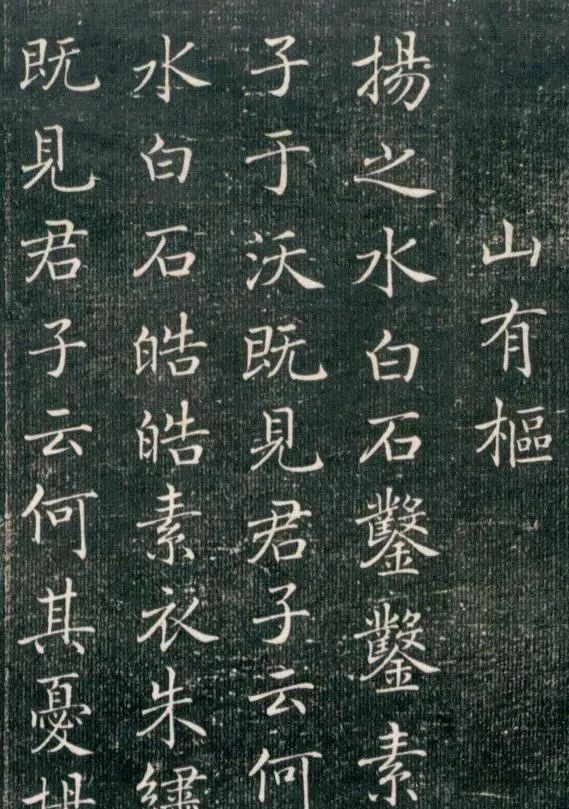 山有樞
揚之水白石鑿鑿素
子于沃既見君子云何
水白石皓皓素衣朱繡
既見君子云何其憂揚